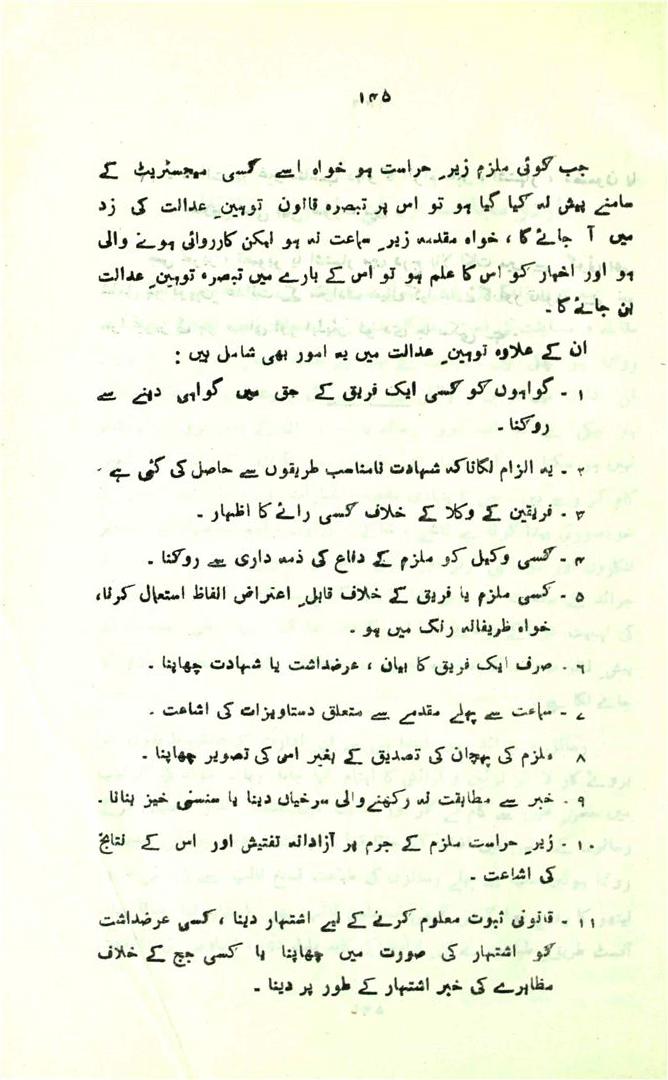 ۱۴۵
جب کوئی ملزم زیرِ حراست ہو خواہ اسے کسی میجسٹریٹ کے
سامنے پیش نہ کیا گیا ہو تو اس پر تبصرہ قانون توہینِ عدالت کی زد
میں آ جائے گا ، خواہ مقدمہ زیرِ سماعت نہ ہو لیکن کارروائی ہونے والی
ہو اور اخبار کو اس کا علم ہو تو اس کے بارے میں تبصرہ توہینِ عدالت
بن جائے گا ۔
ان کے علاوہ توہینِ عدالت میں یہ امور بھی شامل ہیں :
۱ ۔ گواہوں کو کسی ایک فریق کے حق میں گواہی دینے سے
روکنا ۔
۲ ۔ یہ الزام لگانا کہ شہادت نامناسب طریقوں سے حاصل کی گئی ہے ۔
۳ ۔ فریقین کے وکلا کے خلاف کسی رائے کا اظہار ۔
۴ ۔ کسی وکیل کو ملزم کے دفاع کی ذمہ داری سے روکنا ۔
۵ ۔ کسی ملزم یا فریق کے خلاف قابلِ اعتراض الفاظ استعمال کرنا ،
خواہ ظریفانہ رنگ میں ہو ۔
۶ ۔ صرف ایک فریق کا بیان ، عرضداشت یا شہادت چھاپنا ۔
۷ ۔ سماعت سے پہلے مقدمے سے متعلق دستاویزات کی اشاعت ۔
۸ ملزم کی پہچان کی تصدیق کے بغیر اس کی تصویر چھاپنا ۔
۹ ۔ خبر سے مطابقت نہ رکھنے والی سرخیاں دینا یا سنسنی خیز بنانا ۔
۱۰ ۔ زیرِ حراست ملزم کے جرم پر آزادانہ تفتیش اور اس کے نتائج
کی اشاعت ۔
۱۱ ۔ قانونی ثبوت معلوم کرنے کے لیے اشتہار دینا ، کسی عرضداشت
کو اشتہار کی صورت میں چھاپنا یا کسی جج کے خلاف
مظاہرے کی خبر اشتہار کے طور پر دینا ۔